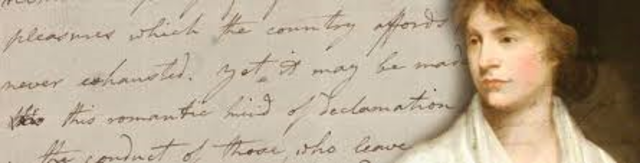 pleasures which the country affords
never exhausted. Yet, it may be mad
this romantic kind of declamation
the conduct of those, who leave